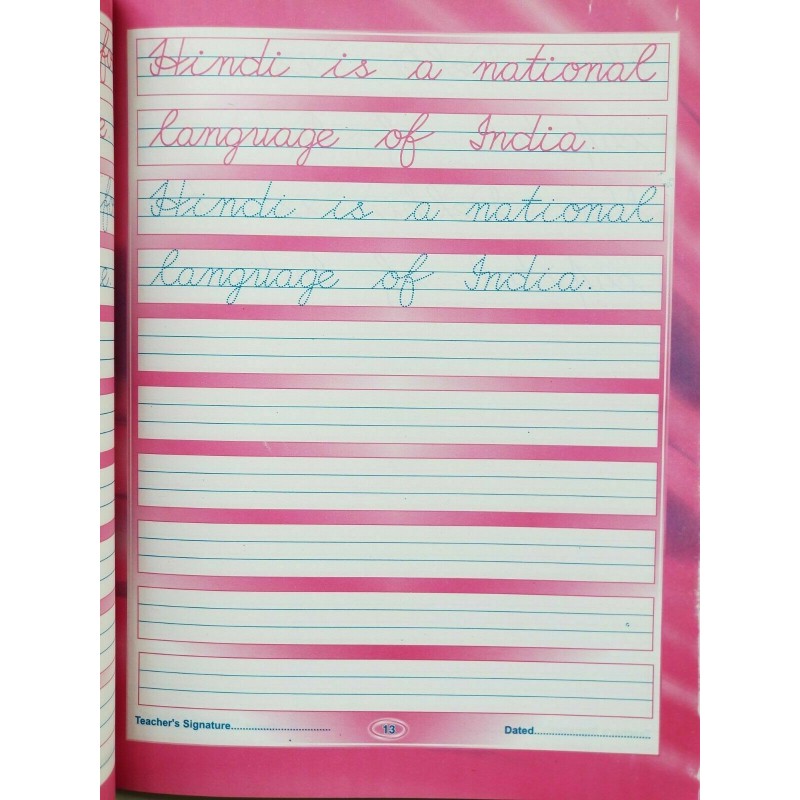 Hindi is a national
language of India.
Hindi is a national
language of India.
Teacher's Signature.................................... 13 Dated..........................................